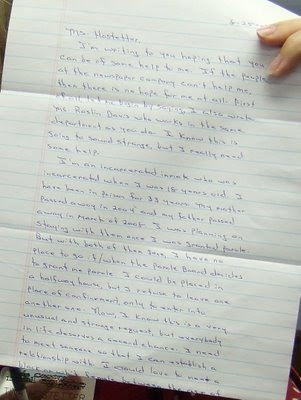 Ms. Hostetter,
I'm writing to you hoping that you
can be of some help to me. If the people
at the newspaper company can't help me,
then there is no hope for me at all. First
let me begin by saying, I also wrote
Ms. Roslin Davis who works in the same
department as you do. I know this is
going to sound strange, but I really need
some help.
I'm an incarcerated inmate who was
incarcerated when I was 18 years old. I
have been in prison for 33 years. My mother
passed away in 2004 and my father passed
away in March of 2005. I was planning on
staying with them once I was granted parole.
But with both of them gone, I have no
place to go if/when the Parole Board decides
to grant me parole. I could be placed in
a halfway house, but I refuse to leave one
place of confinement, only to enter into
another one. Now, I know this is a very
unusual and strange request, but everybody
in life deserves a second chance. I need
to meet someone so that I can establish a
relationship with. I would love to meet a
between the age of